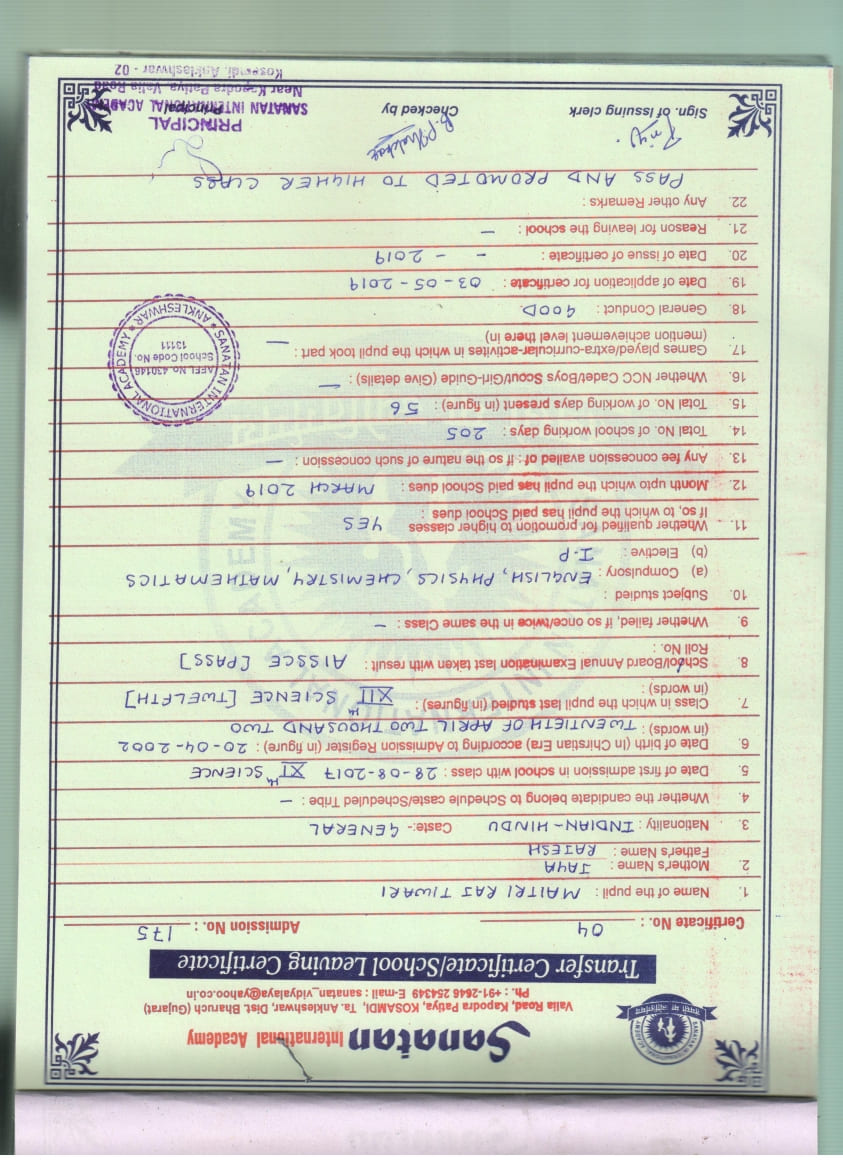 Sanatan International Academy
Valia Road, Kapodra Patiya, KOSAMDI, Ta. Ankleshwar, Dist. Bharuch (Gujarat)
Ph. : +91-2646 254349 E-mail : sanatan_vidyalaya@yahoo.co.in
Transfer Certificate/School Leaving Certificate
Certificate No. : 04 Admission No. : 175
1. Name of the pupil : MAITRI RAJ TIWARI
2. Mother's Name : JAYA
Father's Name : RAJESH
3. Nationality : INDIAN-HINDU Caste:- GENERAL
4. Whether the candidate belong to Schedule caste/Scheduled Tribe : –
5. Date of first admission in school with class : 28-08-2017 XI th SCIENCE
6. Date of birth (In Christian Era) according to Admission Register (in figure) : 20-04-2002
(in words) : TWENTIETH OF APRIL TWO THOUSAND TWO
7. Class in which the pupil last studied (in figures) : XII th SCIENCE [TWELFTH]
(in words) :
8. School/Board Annual Examination last taken with result : AISSCE [PASS]
Roll No. :
9. Whether failed, if so once/twice in the same Class : –
10. Subject studied :
(a) Compulsory : ENGLISH, PHYSICS, CHEMISTRY, MATHEMATICS
(b) Elective : I.P
11. Whether qualified for promotion to higher classes YES
If so, to which the pupil has paid School dues :
12. Month upto which the pupil has paid School dues : MARCH 2019
13. Any fee concession availed of : if so the nature of such concession : –
14. Total No. of school working days : 205
15. Total No. of working days present (in figure) : 56
16. Whether NCC Cadet/Boys Scout/Girl-Guide (Give details) : –
17. Games played/extra-curricular-activites in which the pupil took part : –
(mention achievement level there in)
18. General Conduct : GOOD.
19. Date of application for certificate : 03-05-2019
20. Date of issue of certificate : - - 2019
21. Reason for leaving the school : –
22. Any other Remarks :
PASS AND PROMOTED TO HIGHER CLASS
Sign. of Issuing clerk Checked by Principal
PRINCIPAL
SANATAN INTERNATIONAL ACADEMY
Near Kapodra Patiya, Valia Road
Kosamdi, Ankleshwar - 02
SANATAN INTERNATIONAL ACADEMY ★ ANKLESHWAR ★
AFFI. No. 430146
School Code No.
13111